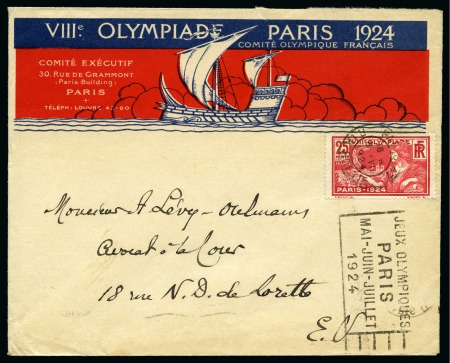 VIIIe. OLYMPIADE PARIS 1924
COMITÉ OLYMPIQUE FRANÇAIS
COMITÉ EXÉCUTIF
30, RUE DE GRAMMONT
(Paris-Building)
PARIS
TÉLÉPH: LOUVRE 45-80
25 OLYMPIADE RF
PARIS-1924
Monsieur A Lévy-Oulmann
Avocat à la Cour
18 rue N. D. de Lorette
E. V
JEUX OLYMPIQUES
PARIS
MAI-JUIN-JUILLET
1924